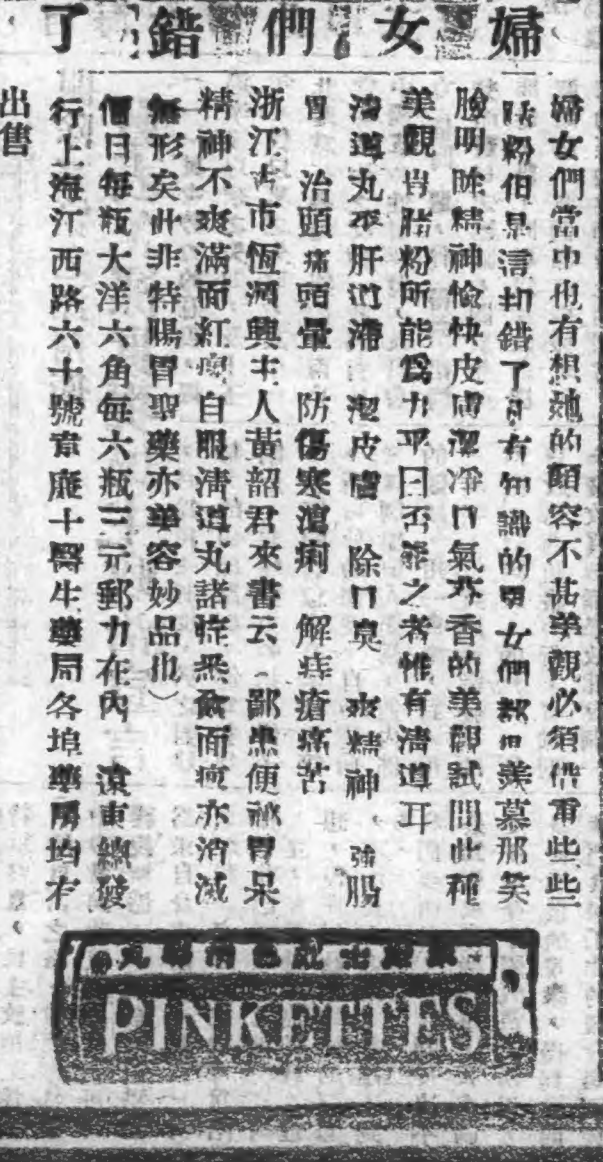 婦女們錯了
婦女們當中也有想她的顏容不甚美觀必須借重些些
脂粉但是這却錯了凡有知識的男女們都但羨慕那笑
臉明眸精神愉快皮膚潔凈口氣芬香的美觀試問此種
美觀豈脂粉所能爲力乎曰否能之者惟有清導耳
清導丸平肝道滯 潔皮膚 除口臭 爽精神 強腸
胃 治頭痛頭暈 防傷寒瀉痢 解痔瘡痛苦
浙江市恆興主人黃韶君來書云 鄙患便祕胃呆
精神不爽滿面紅自服清導丸諸症悉愈而亦消滅
無形矣此非特腸胃聖藥亦華容妙品也）
價目每瓶大洋六角每六瓶三元郵力在內 遠東總發
行上海江西路六十號韋廉士醫生藥局各埠藥房均有
出售
PINKETTES